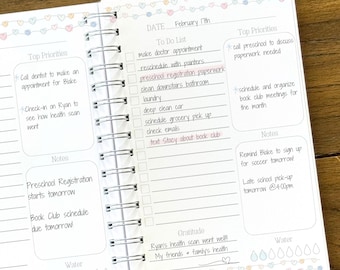 Top Priorities
Call dentist to make an
appointment for Blake
Check-in on Ryan to
see how health scan
went
Notes
Preschool Registration
starts tomorrow!
Book Club schedule
due tomorrow!
Water
DATE February 17th
To Do List
make doctor appointment
reschedule with painters
preschool registration paperwork
clean downstairs bathroom
laundry
deep clean car
schedule grocery pick up
check emails
text Stacy about book club
Gratitude
Ryan's health scan went well!
My friends + family's health
Top Priorities
Call preschool to discuss
paperwork needed
schedule and organize
book club meetings for
the month
Notes
Remind Blake to sign up
for soccer tomorrow!
Late school pick-up
tomorrow @4:00pm
Water